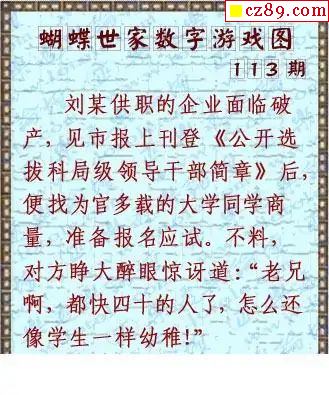 cz89.com
蝴蝶世家数字游戏图
113期
刘某供职的企业面临破
产，见市报上刊登《公开选
拔科局级领导干部简章》后，
便找为官多载的大学同学商
量，准备报名应试。不料，
对方睁大醉眼惊讶道：“老兄
啊，都快四十的人了，怎么还
像学生一样幼稚！”